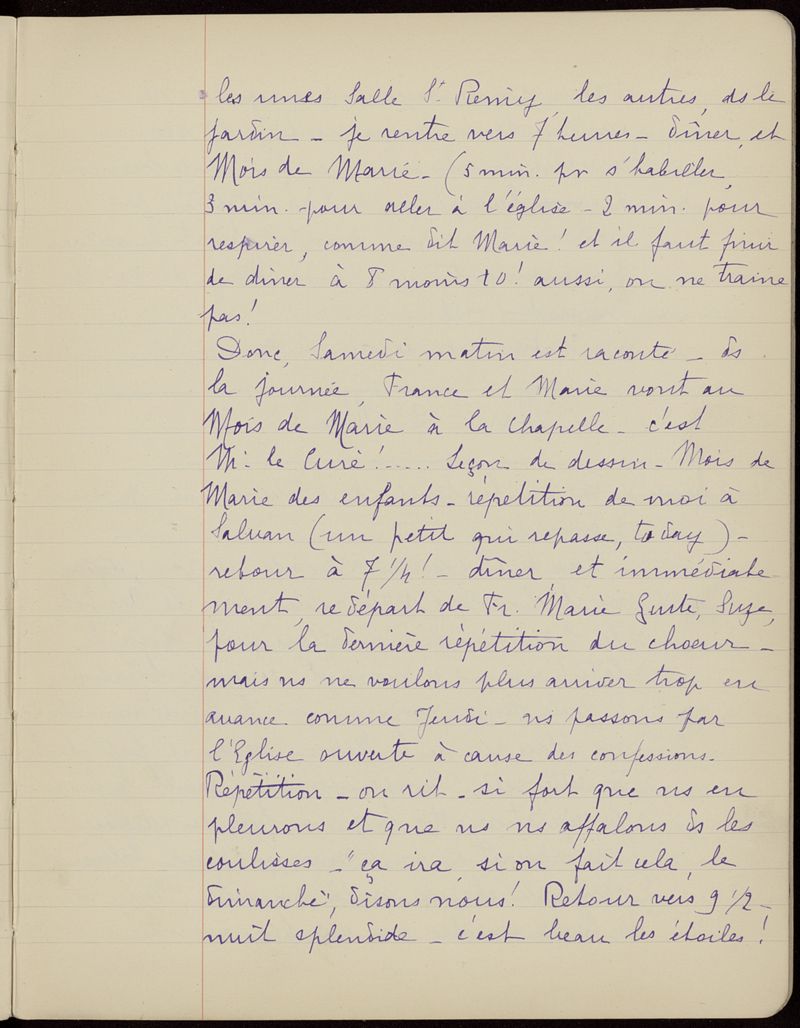 les unes Salle St Remy, les autres, ds le
jardin - je rentre vers 7 heures - dîner, et
Mois de Marie - (5 min. pr s'habiller,
3 min. pour aller à l'église - 2 min. pour
respirer, comme dit Marie! et il faut finir
de dîner à 8 moins 10! aussi, on ne traine
pas!
Donc, Samedi matin est raconté - ds
la journée, France et Marie vont au
Mois de Marie à la Chapelle - c'est
Mr le Curé!..... Leçon de dessin - Mois de
Marie des enfants - répétition de moi à
Salvan (un petit qui repasse, to day) -
retour à 7 1/4! - dîner, et immédiate
ment, redépart de Fr. Marie Guste, Suze,
pour la dernière répétition du choeur -
mais ns ne voulons plus arriver trop en
avance comme Jeudi - ns passons par
l'Eglise ouverte à cause des confessions.
Répétition - on rit - si fort que ns en
pleurons et que ns ns affalons ds les
coulisses - "ça ira, si on fait cela, le
dimanche", disons nous! Retour vers 9 1/2 -
nuit splendide - c'est beau les étoiles!